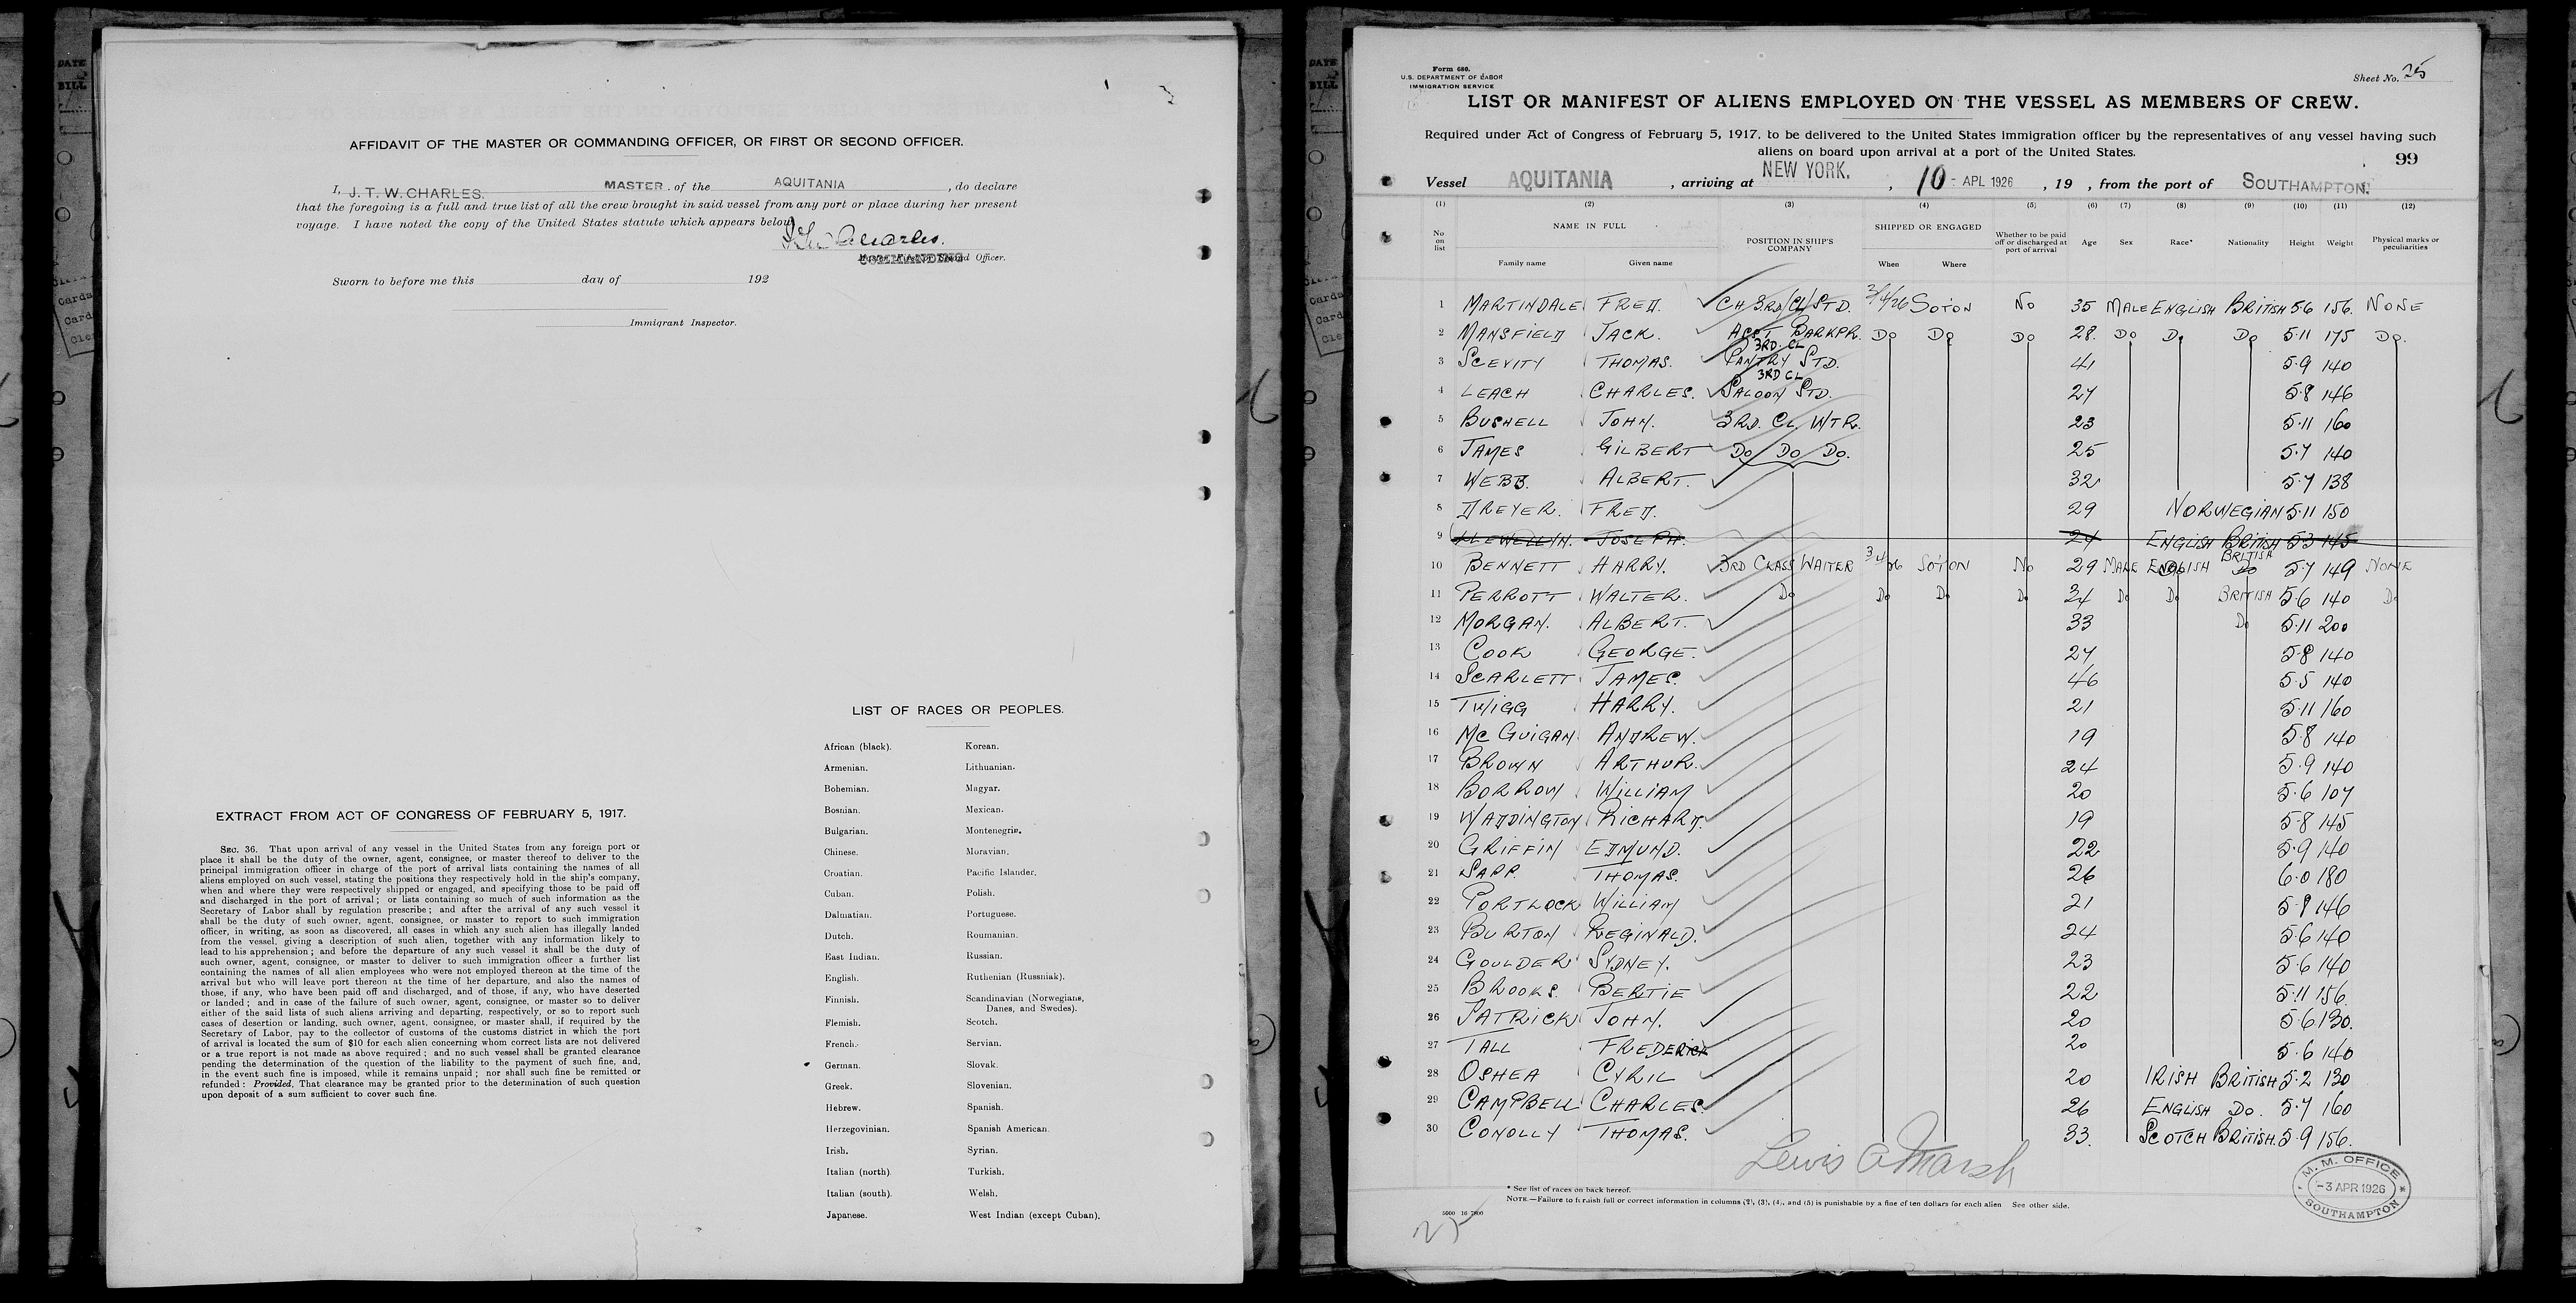 AFFIDAVIT OF THE MASTER OR COMMANDING OFFICER, OR FIRST OR SECOND OFFICER.
I, J. T. W. CHARLES, MASTER of the AQUITANIA, do declare
that the foregoing is a full and true list of all the crew brought in said vessel from any port or place during her present
voyage. I have noted the copy of the United States statute which appears below.
COMMANDING Officer.
Sworn to before me this day of 192
Immigrant Inspector.
EXTRACT FROM ACT OF CONGRESS OF FEBRUARY 5, 1917.
SEC. 36. That upon arrival of any vessel in the United States from any foreign port or
place it shall be the duty of the owner, agent, consignee, or master thereof to deliver to the
principal immigration officer in charge of the port of arrival lists containing the names of all
aliens employed on such vessel, stating the positions they respectively hold in the ship's company,
when and where they were respectively shipped or engaged, and specifying those to be paid off
and discharged in the port of arrival; or lists containing so much of such information as the
Secretary of Labor shall by regulation prescribe; and after the arrival of any such vessel it
shall be the duty of such owner, agent, consignee, or master to report to such immigration
officer, in writing, as soon as discovered, all cases in which any such alien has illegally landed
from the vessel, giving a description of such alien, together with any information likely to
lead to his apprehension; and before the departure of any such vessel it shall be the duty of
such owner, agent, consignee, or master to deliver to such immigration officer a further list
containing the names of all alien employees who were not employed thereon at the time of the
arrival but who will leave port thereon at the time of her departure, and also the names of
those, if any, who have been paid off and discharged, and of those, if any, who have deserted
or landed; and in case of the failure of such owner, agent, consignee, or master so to deliver
either of the said lists of such aliens arriving and departing, respectively, or so to report such
cases of desertion or landing, such owner, agent, consignee, or master shall, if required by the
Secretary of Labor, pay to the collector of customs of the customs district in which the port
of arrival is located the sum of $10 for each alien concerning whom correct lists are not delivered
or a true report is not made as above required; and no such vessel shall be granted clearance
pending the determination of the question of the liability to the payment of such fine, and,
in the event such fine is imposed, while it remains unpaid; nor shall such fine be remitted or
refunded: Provided, That clearance may be granted prior to the determination of such question
upon deposit of a sum sufficient to cover such fine.
LIST OF RACES OR PEOPLES.
African (black). Korean.
Armenian. Lithuanian.
Bohemian. Magyar.
Bosnian. Mexican.
Bulgarian. Montenegrin.
Chinese. Moravian.
Croatian. Pacific Islander.
Cuban. Polish.
Dalmatian. Portuguese.
Dutch. Roumanian.
East Indian. Russian.
English. Ruthenian (Russniak).
Finnish. Scandinavian (Norwegians,
Danes, and Swedes).
Flemish. Scotch.
French. Servian.
German. Slovak.
Greek. Slovenian.
Hebrew. Spanish.
Herzegovinian. Spanish American.
Irish. Syrian.
Italian (north). Turkish.
Italian (south). Welsh.
Japanese. West Indian (except Cuban).
Form 680.
U.S. DEPARTMENT OF LABOR
IMMIGRATION SERVICE
Sheet No. 25
LIST OR MANIFEST OF ALIENS EMPLOYED ON THE VESSEL AS MEMBERS OF CREW.
Required under Act of Congress of February 5, 1917, to be delivered to the United States immigration officer by the representatives of any vessel having such
aliens on board upon arrival at a port of the United States.
99
Vessel AQUITANIA, arriving at NEW YORK., 10 - APL 1926, 19 , from the port of SOUTHAMPTON.
(1) (2) (3) (4) (5) (6) (7) (8) (9) (10) (11) (12)
No on list NAME IN FULL Family name Given name POSITION IN SHIP'S COMPANY SHIPPED OR ENGAGED When Where Whether to be paid off or discharged at port of arrival Age Sex Race* Nationality Height Weight Physical marks or peculiarities
1 MARTINDALE FRED. CH 3RD/CL/STD. 3/4/26 SOTON NO 35 MALE ENGLISH BRITISH 5.6 156. NONE
2 MANSFIELD JACK. ASST BARKPR. DO DO DO 28. DO DO DO 5.11 175 DO.
3 SCEVITY THOMAS. 3RD. CL PANTRY STD. 41 5.9 140
4 LEACH CHARLES. 3RD CL SALOON STD. 27 5.8 146
5 BUSHELL JOHN. 3RD. CL. WTR. 23 5.11 160
6 JAMES GILBERT DO DO DO. 25 5.7 140
7 WEBB. ALBERT. 32 5.7 138
8 DREYER. FRED. 29 NORWEGIAN 5.11 150
9 LLEWELLYN. JOSEPH. 24 ENGLISH BRITISH 5.3 145
10 BENNETT HARRY. 3RD CLASS WAITER 3/4/26 SOTON NO 29 MALE ENGLISH BRITISH 5.7 149 NONE
11 PERROTT WALTER. DO DO DO DO 34 DO DO BRITISH 5.6 140 DO
12 MORGAN. ALBERT. 33 DO 5.11 200
13 COOK GEORGE. 27 5.8 140
14 SCARLETT JAMES. 46 5.5 140
15 TWIGG HARRY. 21 5.11 160
16 MCGUIGAN ANDREW. 19 5.8 140
17 BROWN ARTHUR. 24 5.9 140
18 BORROW WILLIAM 20 5.6 107
19 WADDINGTON RICHARD. 19 5.8 145
20 GRIFFIN EDMUND. 22 5.9 140
21 SAPP. THOMAS. 26 6.0 180
22 PORTLOCK WILLIAM 21 146
23 BURTON REGINALD. 24 5.6 140
24 GOULDER SYDNEY. 23 5.6 140
25 BROOKS. BERTIE 22 5.11 156.
26 PATRICK JOHN. 20 5.6 130.
27 TALL FREDERICK 20 5.6 140
28 OSHEA CYRIL 20 IRISH BRITISH 5.2 130
29 CAMPBELL CHARLES. 26 ENGLISH DO. 5.7 160
30 CONOLLY THOMAS. 33. SCOTCH BRITISH. 5.9 156.
Lewis A Marsh
* See list of races on back hereof.
NOTE.—Failure to furnish full or correct information in columns (2), (3), (4), and (5) is punishable by a fine of ten dollars for each alien See other side.
M. M. OFFICE
-3 APR 1926
SOUTHAMPTON
25